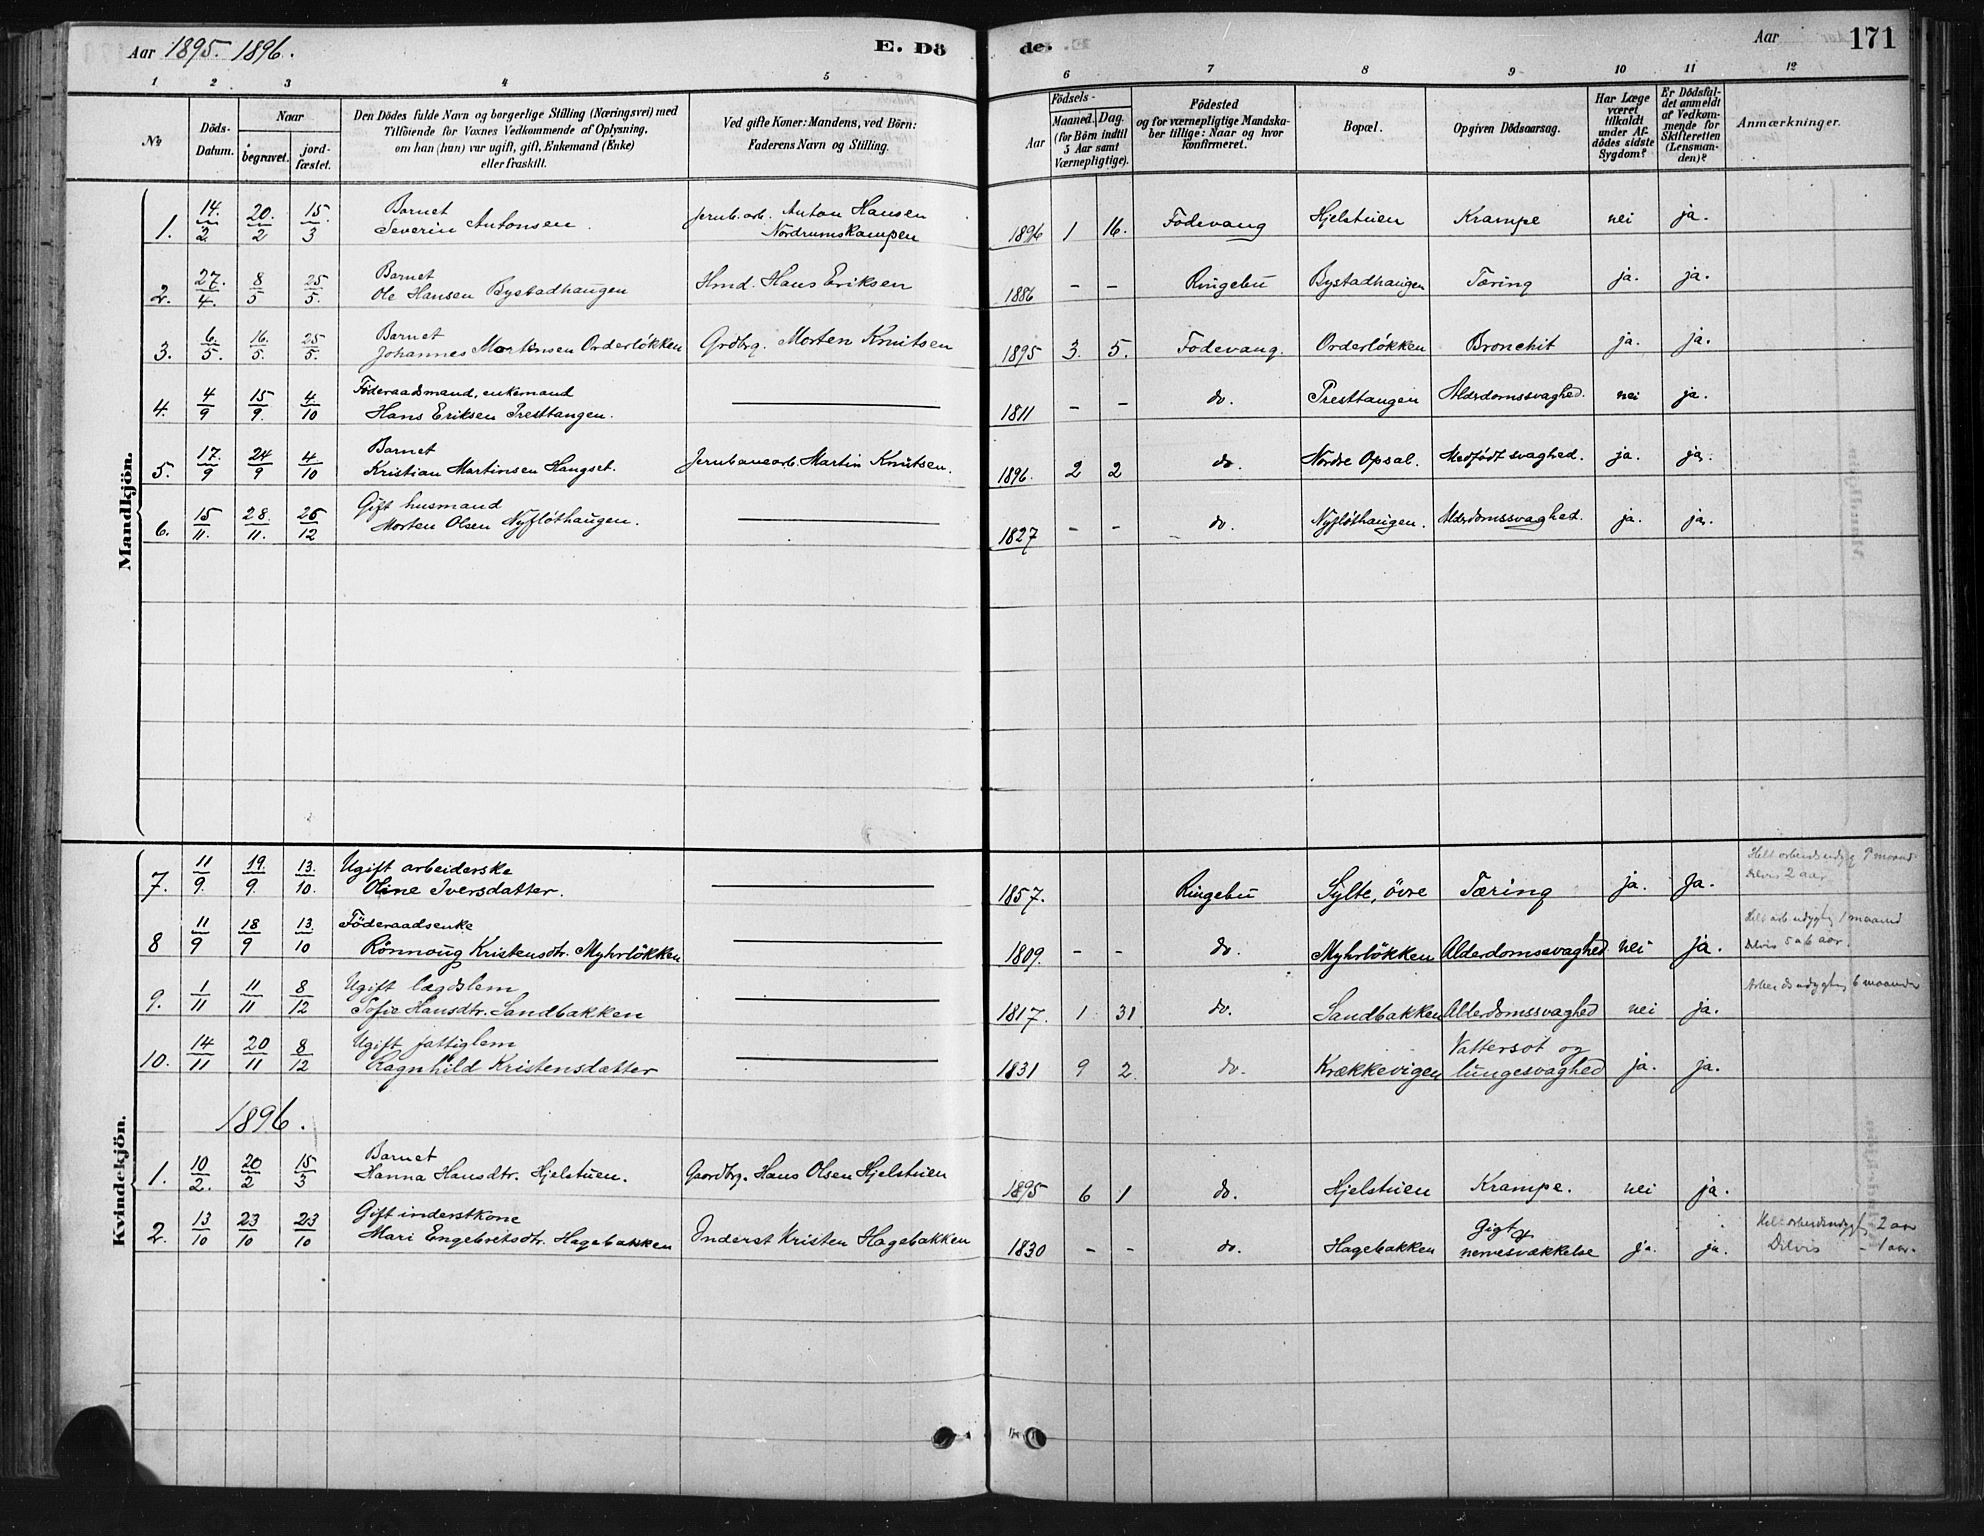 Aar 1895. 1896.
E. Dö
de.
Aar
171
1 2 3 4 5 6 7 8 9 10 11 12
No
Döds-Datum.
Naar
begravet.
jordfæstet.
Den Dödes fulde Navn og borgerlige Stilling (Næringsvei) med
Tilföiende for Voxnes Vedkommende af Oplysning,
om han (hun) var ugift, gift, Enkemand (Enke)
eller fraskilt.
Ved gifte Koner: Mandens, ved Börn:
Faderens Navn og Stilling.
Födsels-
Aar
Maaned. Dag.
(for Börn indtil
5 Aar samt
Værnepligtige).
Födested
og for værnepligtige Mandska-
ber tillige: Naar og hvor
konfirmeret.
Bopæl.
Opgiven Dödsaarsag.
Har Læge
været
tilkaldt
under Af-
dödes sidste
Sygdom?
Er Dödsfal-
det anmeldt
af Vedkom-
mende for
Skifteretten
(Lensman-
den)?
Anmærkninger.
Mandkjön.
1. 14./2. 20./2 15./3 Barnet
Severin Antonsen. Jernb. arb. Anton Hansen
Nordrumskampen 1896 1 16. Födevang Hjelstuen Krampe nei ja.
2. 27./4. 8/5 25/5. Barnet
Ole Hansen Bystadhaugen Hmd. Hans Eriksen 1886 - - Ringebu Bystadhaugen Tæring ja. ja.
3. 6./5. 16./5. 25/5. Barnet
Johannes Mortinsen Orderløkken Grdbrg. Morten Knutsen 1895 3. 5. Fodevang. Orderløkken Bronchit ja. ja.
4. 4/9 15/9. 4./10 Föderaadsmand, enkemand
Hans Eriksen Presttangen. 1811 - - do. Presttangen Alderdomssvaghed. nei ja.
5. 17./9 24/9 4./10 Barnet
Kristian Martinsen Haugset. Jernbanearb. Martin Knutsen. 1896. 2 2 do. Nordre Opsal. Medfödt svaghed. ja. ja.
6. 15/11. 28./11. 26/12 Gift husmand
Morten Olsen Nyfløthaugen. 1827 - - do. Nyfløthaugen. Alderdomssvaghed. ja. ja.
Kvindekjön.
7. 11/9. 19./9. 13./10. Ugift arbeiderske
Oline Iversdatter. 1857. Ringebu Sylte, övre Tæring ja. Ja. 9 maand.
Delvis 2 aar
8 11/9 18/9 13./10 Föderaadsenke
Rönnoug Kristensdtr. Myhrløkken 1809. - - do. Myhrløkken Alderdomssvaghed nei ja. Helt arb udygtig 1 maaned
Delvis 5 a 6 aar.
9. 1/11 11/11 8/12 Ugift lægdslem
Sofie Hansdtr. Sandbakken 1817. 1 31 do. Sandbakken Alderdomssvaghed nei ja. Arbeidsudygtig 6 maaneder
10. 14/11 20/11 8/12 Ugift fattiglem
Ragnhild Kristensdatter 1831 9 2. do. Krækkevigen Vattersot og
lungesvaghed ja. ja.
1896.
1. 10/2. 20/2 15/3 Barnet
Hanna Hansdtr. Hjelstuen. Gaardbrg. Hans Olsen Hjelstuen 1895 6 1 do. Hjelstuen Krampe. nei ja.
2. 13/10 23/10 23/10 Gift inderstkone
Mari Engebretsdtr. Hagebakken Inderst Kristen Hagebakken 1830 - - do. Hagebakken Gigt og
nervesvækkelse ja. ja. Helt arbeidsudygt. 2 aar
Delvis - 1 aar.